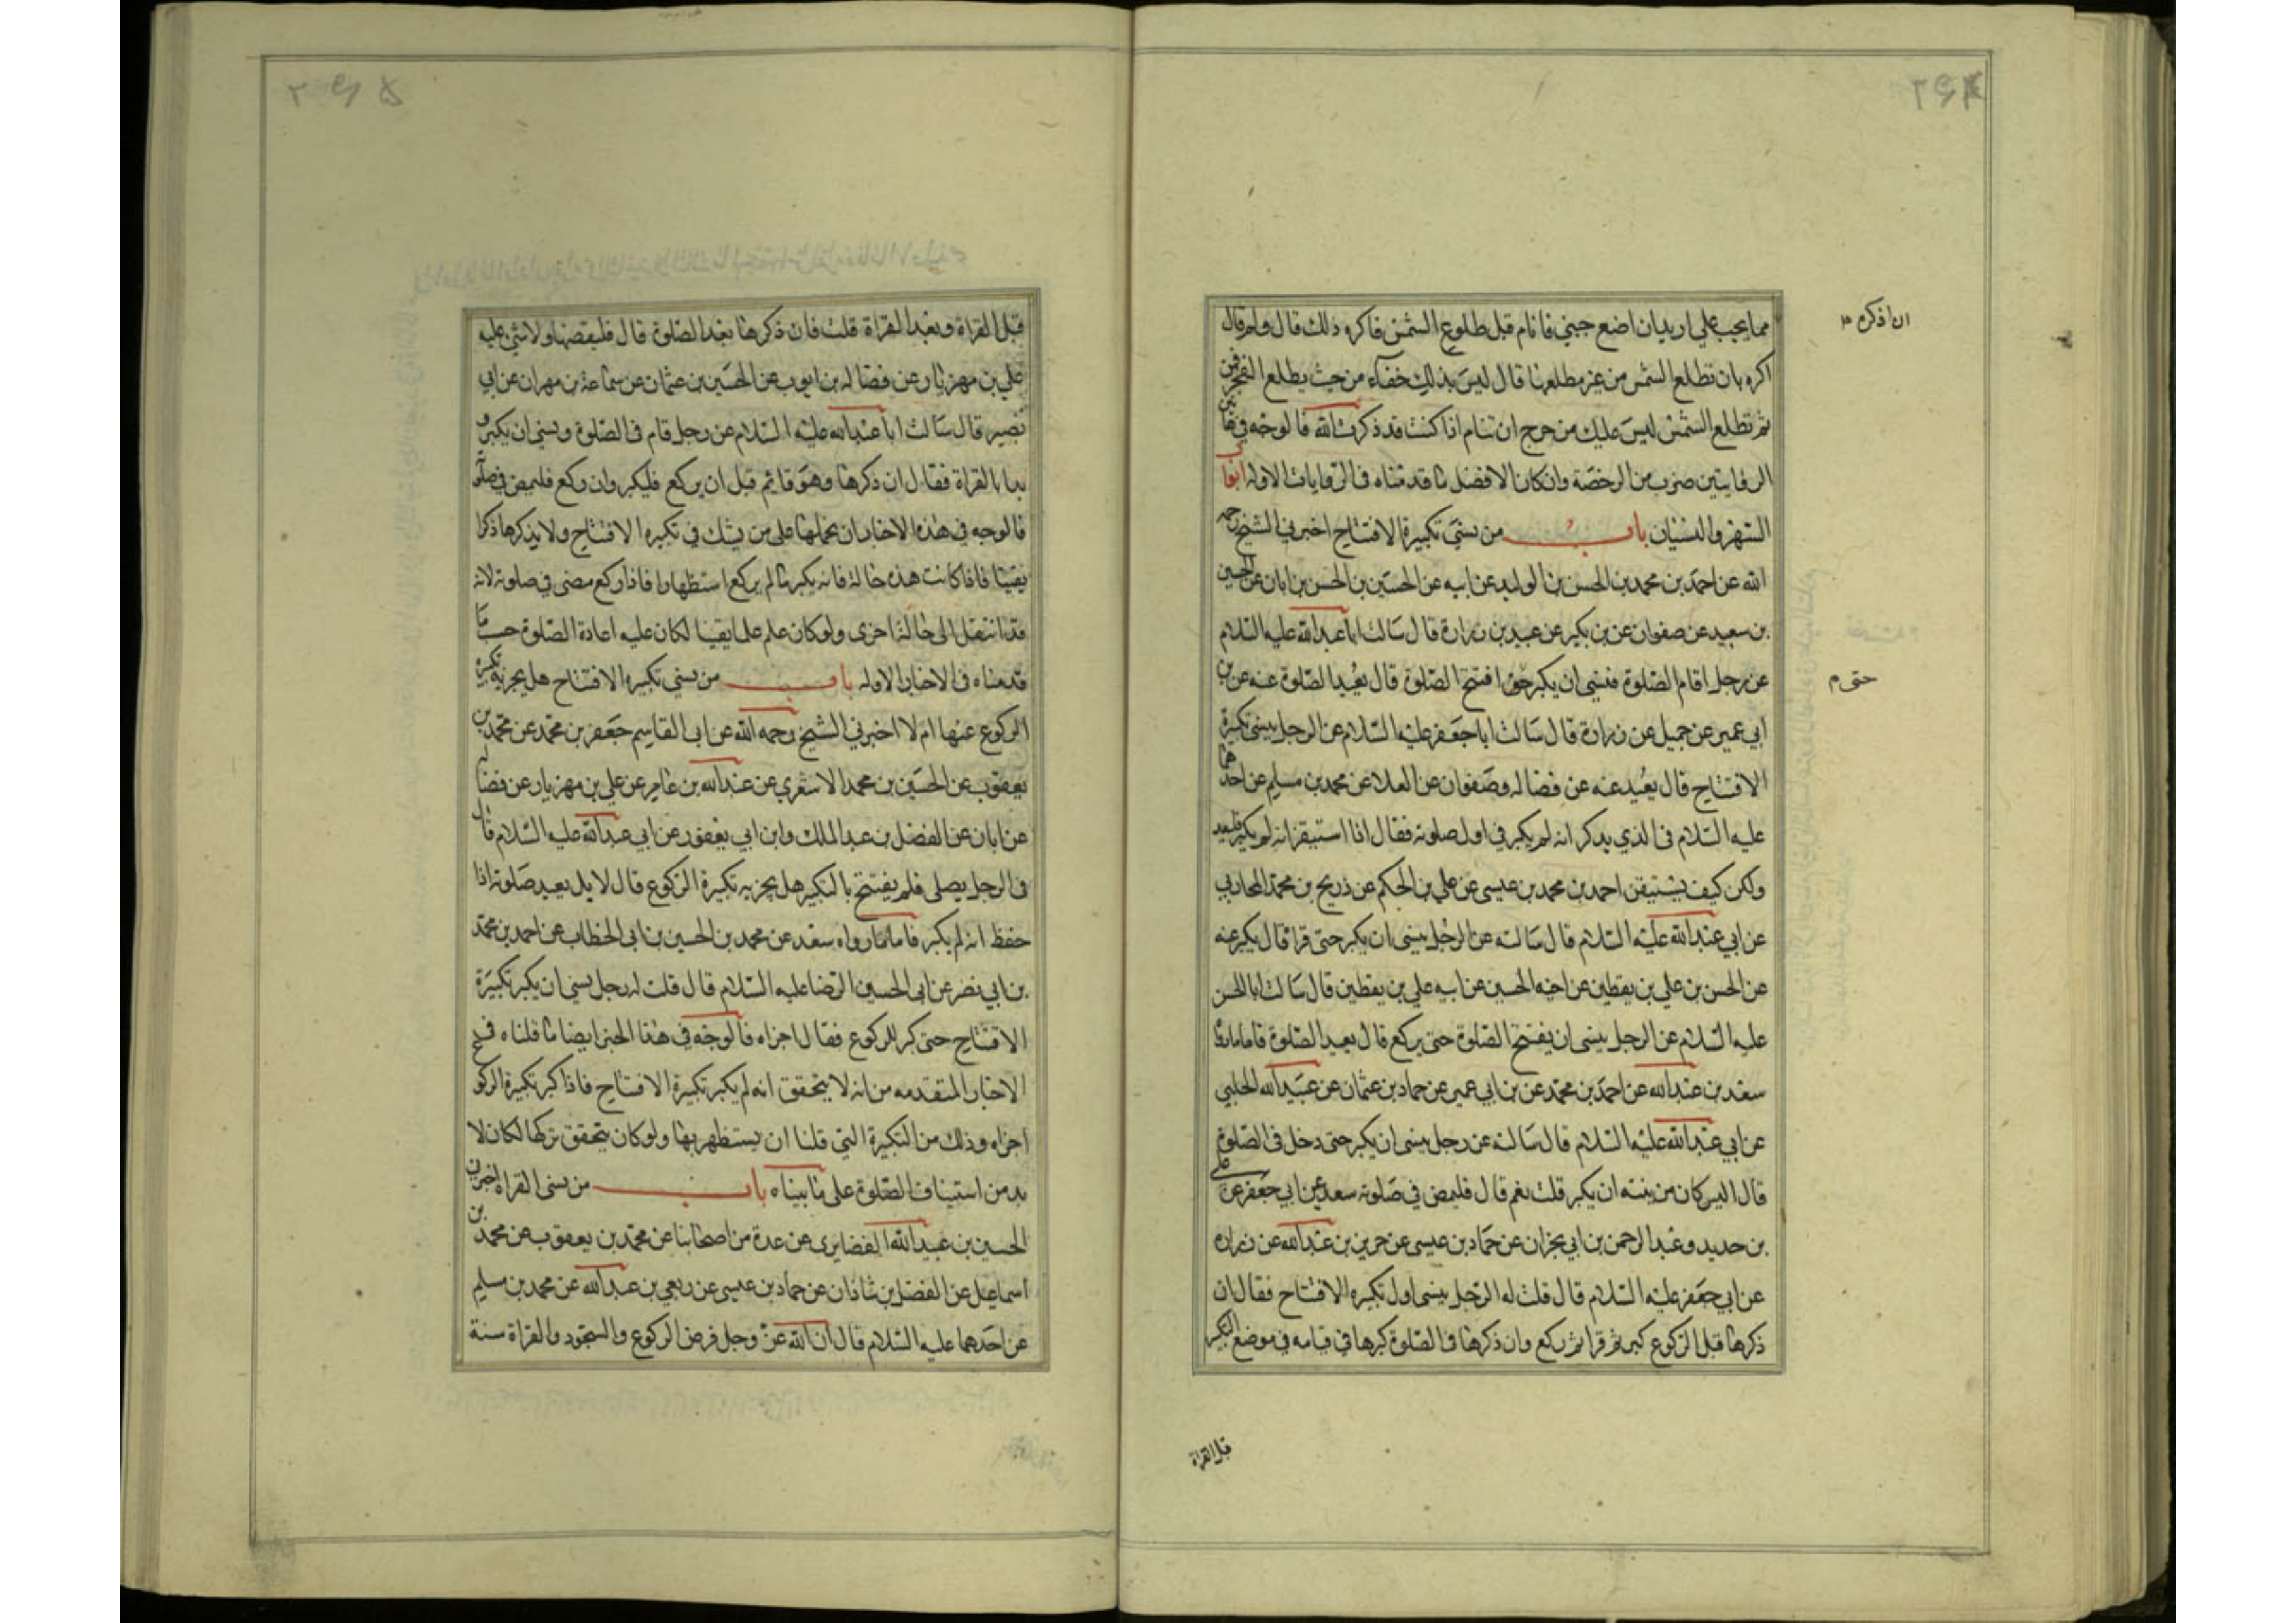 مما يجب علي اريد ان اضع جنبي فانام قبل طلوع الشمس فاكره ذلك قال ولم قال
ان اذكره
اكره بان تطلع الشمس من غير مطلعها قال ليس بذلك خفاء من حيث يطلع الفجر فمن
ثم تطلع الشمس ليس عليك من حرج ان تنام اذا كنت قد ذكرت الله فالوجه في هاتين
الروايتين ضرب من الرخصة وان كان الافضل ما قدمناه في الروايات الاوله ابواب
السهو والنسيان باب من نسي تكبيرة الافتتاح اخبرني الشيخ رحمه
الله عن احمد بن محمد بن الحسن بن الوليد عن ابيه عن الحسين بن الحسن بن ابان عن الحسين
بن سعيد عن صفوان عن بن بكير عن عبيد بن زرارة قال سالت ابا عبد الله عليه السلام
عن رجل اقام الصلوة فنسي ان يكبر حتى افتتح الصلوة قال يعيد الصلوة عنه عن بن
حتى م
ابي عمير عن جميل عن زرارة قال سالت ابا جعفر عليه السلام عن الرجل ينسى تكبيرة
الافتتاح قال يعيد عنه عن فضاله وصفوان عن العلا عن محمد بن مسلم عن احدهما
عليه السلام في الذي يذكر انه لم يكبر في اول صلوته فقال اذا استيقن انه لم يكبر فليعد
ولكن كيف يستيقن احمد بن محمد بن عيسى عن علي بن الحكم عن ذريح بن محمد المحاربي
عن ابي عبد الله عليه السلام قال سالته عن الرجل ينسى ان يكبر حتى قرا قال يكبر عنه
عن الحسن بن علي بن يقطين عن اخيه الحسين عن ابيه علي بن يقطين قال سالت ابا الحسن
عليه السلام عن الرجل ينسى ان يفتتح الصلوة حتى يركع قال يعيد الصلوة فاما مارواه
سعد بن عبد الله عن احمد بن محمد عن بن ابي عمير عن حماد بن عثمان عن عبيد الله الحلبي
عن ابي عبد الله عليه السلام قال سالته عن رجل ينسى ان يكبر حتى دخل في الصلوة
قال اليس كان من نيته ان يكبر قلت نعم قال فليمض في صلوته سعد عن ابي جعفر عن علي
بن حديد وعبد الرحمن بن ابي نجران عن حماد بن عيسى عن حريز بن عبد الله عن زراره
عن ابي جعفر عليه السلام قال قلت له الرجل ينسى اول تكبيره الافتتاح فقال ان
ذكرها قبل الركوع كبر ثم قرا ثم ركع وان ذكرها في الصلوة كبرها في قيامه في موضع التكبير
قبل القراة
قبل القراة وبعد القراة قلت فان ذكرها بعد الصلوة قال فليقضها ولا شئ عليه
علي بن مهزيار عن فضاله بن ايوب عن الحسين بن عثمان عن سماعة بن مهران عن ابي
بصير قال سالت ابا عبد الله عليه السلام عن رجل قام في الصلوة ونسي ان يكبر و
بدا بالقراة فقال ان ذكرها وهو قائم قبل ان يركع فليكبر وان ركع فليمض في صلوته
فالوجه في هذه الاخبار ان نحملها على من يشك في تكبيره الافتتاح ولا يذكرها ذكرا
يقينا فاذا كانت هذه حاله فانه يكبر مالم يركع استظهارا فاذا ركع مضى في صلوته لانه
قد انتقل الى حالة اخرى ولو كان علم علما يقينا لكان عليه اعادة الصلوة حسب ما
قدمناه في الاخبار الاوله باب من نسي تكبيره الافتتاح هل يجزيه تكبيره
الركوع عنها ام لا اخبرني الشيخ رحمه الله عن ابي القاسم جعفر بن محمد عن محمد بن
يعقوب عن الحسين بن محمد الاشعري عن عبد الله بن عامر عن علي بن مهزيار عن فضاله
عن ابان عن الفضل بن عبد الملك وابن ابي يعفور عن ابي عبد الله عليه السلام قال
في الرجل يصلي فلم يفتتح بالتكبير هل يجزيه تكبيرة الركوع قال لا بل يعيد صلوته اذا
حفظ انه لم يكبر فاما مارواه سعد عن محمد بن الحسين بن ابي الخطاب عن احمد بن محمد
بن ابي نصر عن ابي الحسين الرضا عليه السلام قال قلت له رجل نسي ان يكبر تكبيرة
الافتتاح حتى كبر للركوع فقال اجزاه فالوجه في هذا الخبر ايضا ما قلناه في
الاخبار المتقدمه من انه لا يتحقق انه لم يكبر تكبيرة الافتتاح فاذا كبر تكبيرة الركو
اجزاه وذلك من التكبيرة التي قلنا ان يستظهر بها ولو كان يتحقق تركها لكان لا
بد من استيناف الصلوة على ما بيناه باب من نسى القراة اخبرني
الحسين بن عبيد الله الغضايري عن عدة من اصحابنا عن محمد بن يعقوب عن محمد بن
اسماعيل عن الفضل بن شاذان عن حماد بن عيسى عن ربعي بن عبد الله عن محمد بن مسلم
عن احدهما عليه السلام قال ان الله عز وجل فرض الركوع والسجود والقراة سنة